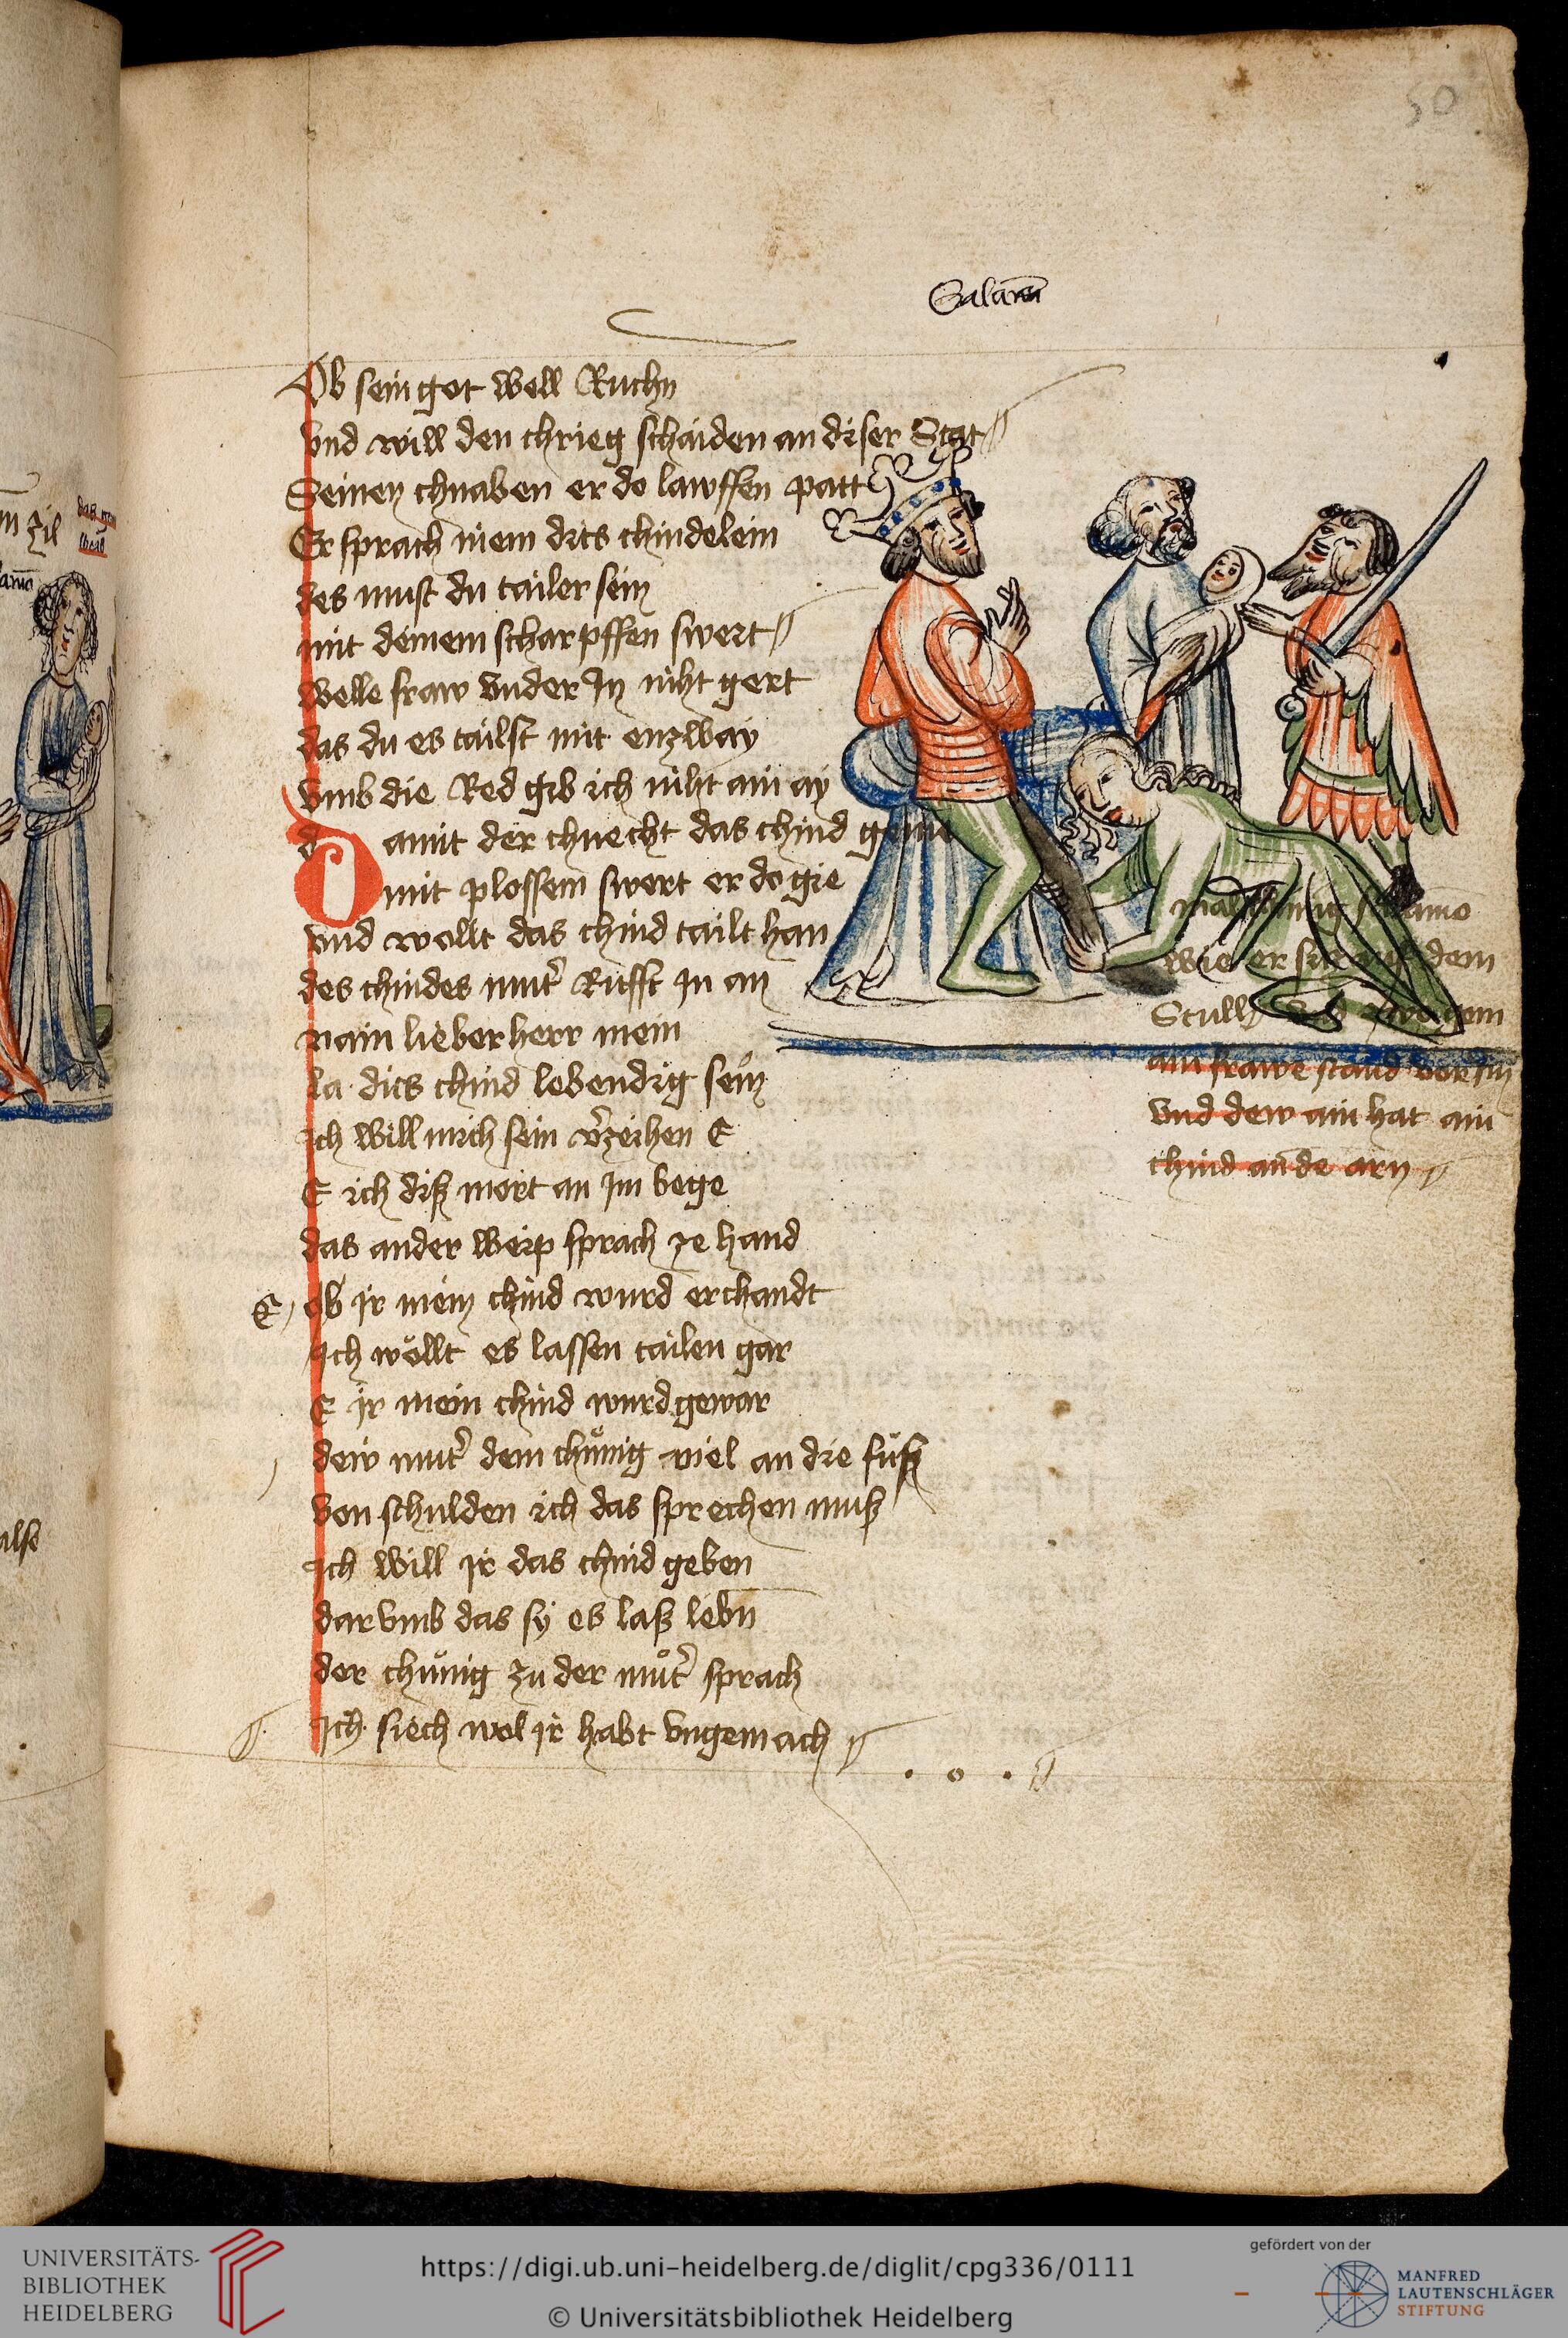 50
Salamo
Ob sein got well Ruchn
vnd will den chrieg schaiden an diser Stat
Seinen chnaben er do lawffen patt
Er sprach niem dits chindelein
des must du tailer sein
mit deinem scharpffen swert
welle fraw vnder In niht gert
das du es tailst mit enzway
vmb die Red gib ich niht ain ay
d amit der chnecht das chind
mit plossem swert er do gie
vnd wollt das chind tailt han
des chindes mut̉ Rufft In an
nain lieber herr mein
la dits chind lebendig sein
ich will mich sein v̉zeihen E
E ich diß mort an Im bege
das ander weip sprach ze hand
E ob ir mein chind wurd erchandt
Ich wöllt es lassen tailen gar
E ir mein chind wurd gewar
dew mut̉ dem chůnig viel an die fuͤß
von schulden ich das sprechen muß
Ich will ir das chind geben
dar vmb das sy es laß lebn̄
der chůnig zu der můt̉ sprach
Ich siech wol ir habt vngemach
mal
wie er siczt auf dem
Stull
ain frawe stand vor Im
vnd dew ain hat ain
chind an de arm
m zil
das
weib
amo
alſo
UNIVERSITÄTS-
BIBLIOTHEK
HEIDELBERG
https://digi.ub.uni-heidelberg.de/diglit/cpg336/0111
© Universitätsbibliothek Heidelberg
gefördert von der
MANFRED
LAUTENSCHLÄGER
STIFTUNG